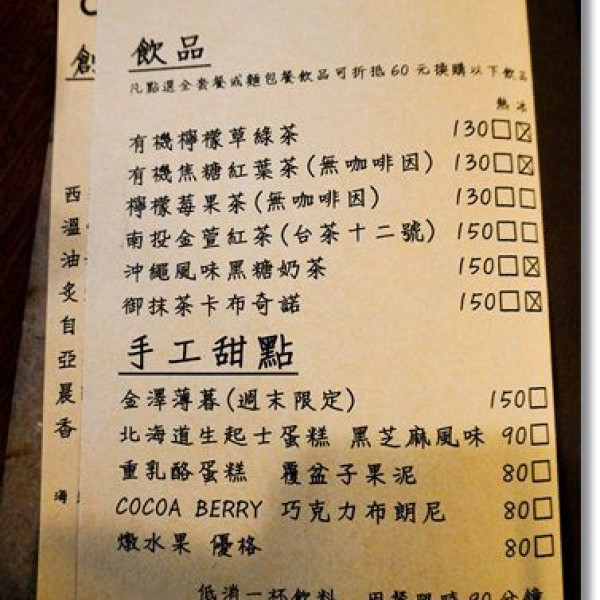 飲品
凡點選全套餐或麵包餐飲品可折抵60元換購以下飲品
熱 冰
有機檸檬草綠茶 130□☒
有機焦糖紅葉茶(無咖啡因) 130□☒
檸檬莓果茶(無咖啡因) 130□□
南投金萱紅茶(台茶十二號) 150□□
沖繩風味黑糖奶茶 150□☒
御抹茶卡布奇諾 150□☒
手工甜點
金澤薄暮(週末限定) 150□
北海道生起士蛋糕 黑芝麻風味 90□
重乳酪蛋糕 覆盆子果泥 80□
COCOA BERRY 巧克力布朗尼 80□
燉水果 優格 80□
低消一杯飲料 用餐限時90分鐘
創
西
溫
油
炙
自
亞
晨
香
海